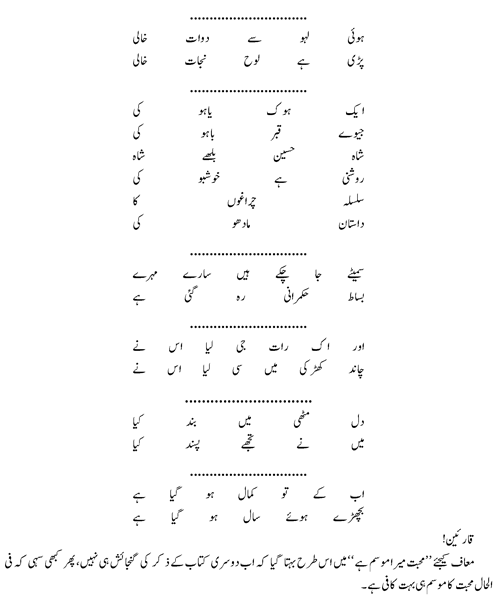 ..............................
ہوئی لہو سے دوات خالی
پڑی ہے لوح نجات خالی
..............................
ایک ہوک یاہو کی
جیوے قبر باہو کی
شاہ حسین بلھے شاہ
روشنی ہے خوشبو کی
سلسلہ چراغوں کا
داستان مادھو کی
..............................
سمیٹے جا چکے ہیں سارے مہرے
بساط حکمرانی رہ گئی ہے
..............................
اور اک رات جی لیا اس نے
چاند کھڑکی میں سی لیا اس نے
..............................
دل مٹھی میں بند کیا
میں نے تجھے پسند کیا
..............................
اب کے تو کمال ہو گیا ہے
بچھڑے ہوئے سال ہو گیا ہے
قارئین!
معاف کیجئے ’’محبت میرا موسم ہے‘‘ میں اس طرح بہتا گیا کہ اب دوسری کتاب کے ذکر کی گنجائش ہی نہیں، پھر کبھی سہی کہ فی
الحال محبت کا موسم ہی بہت کافی ہے۔